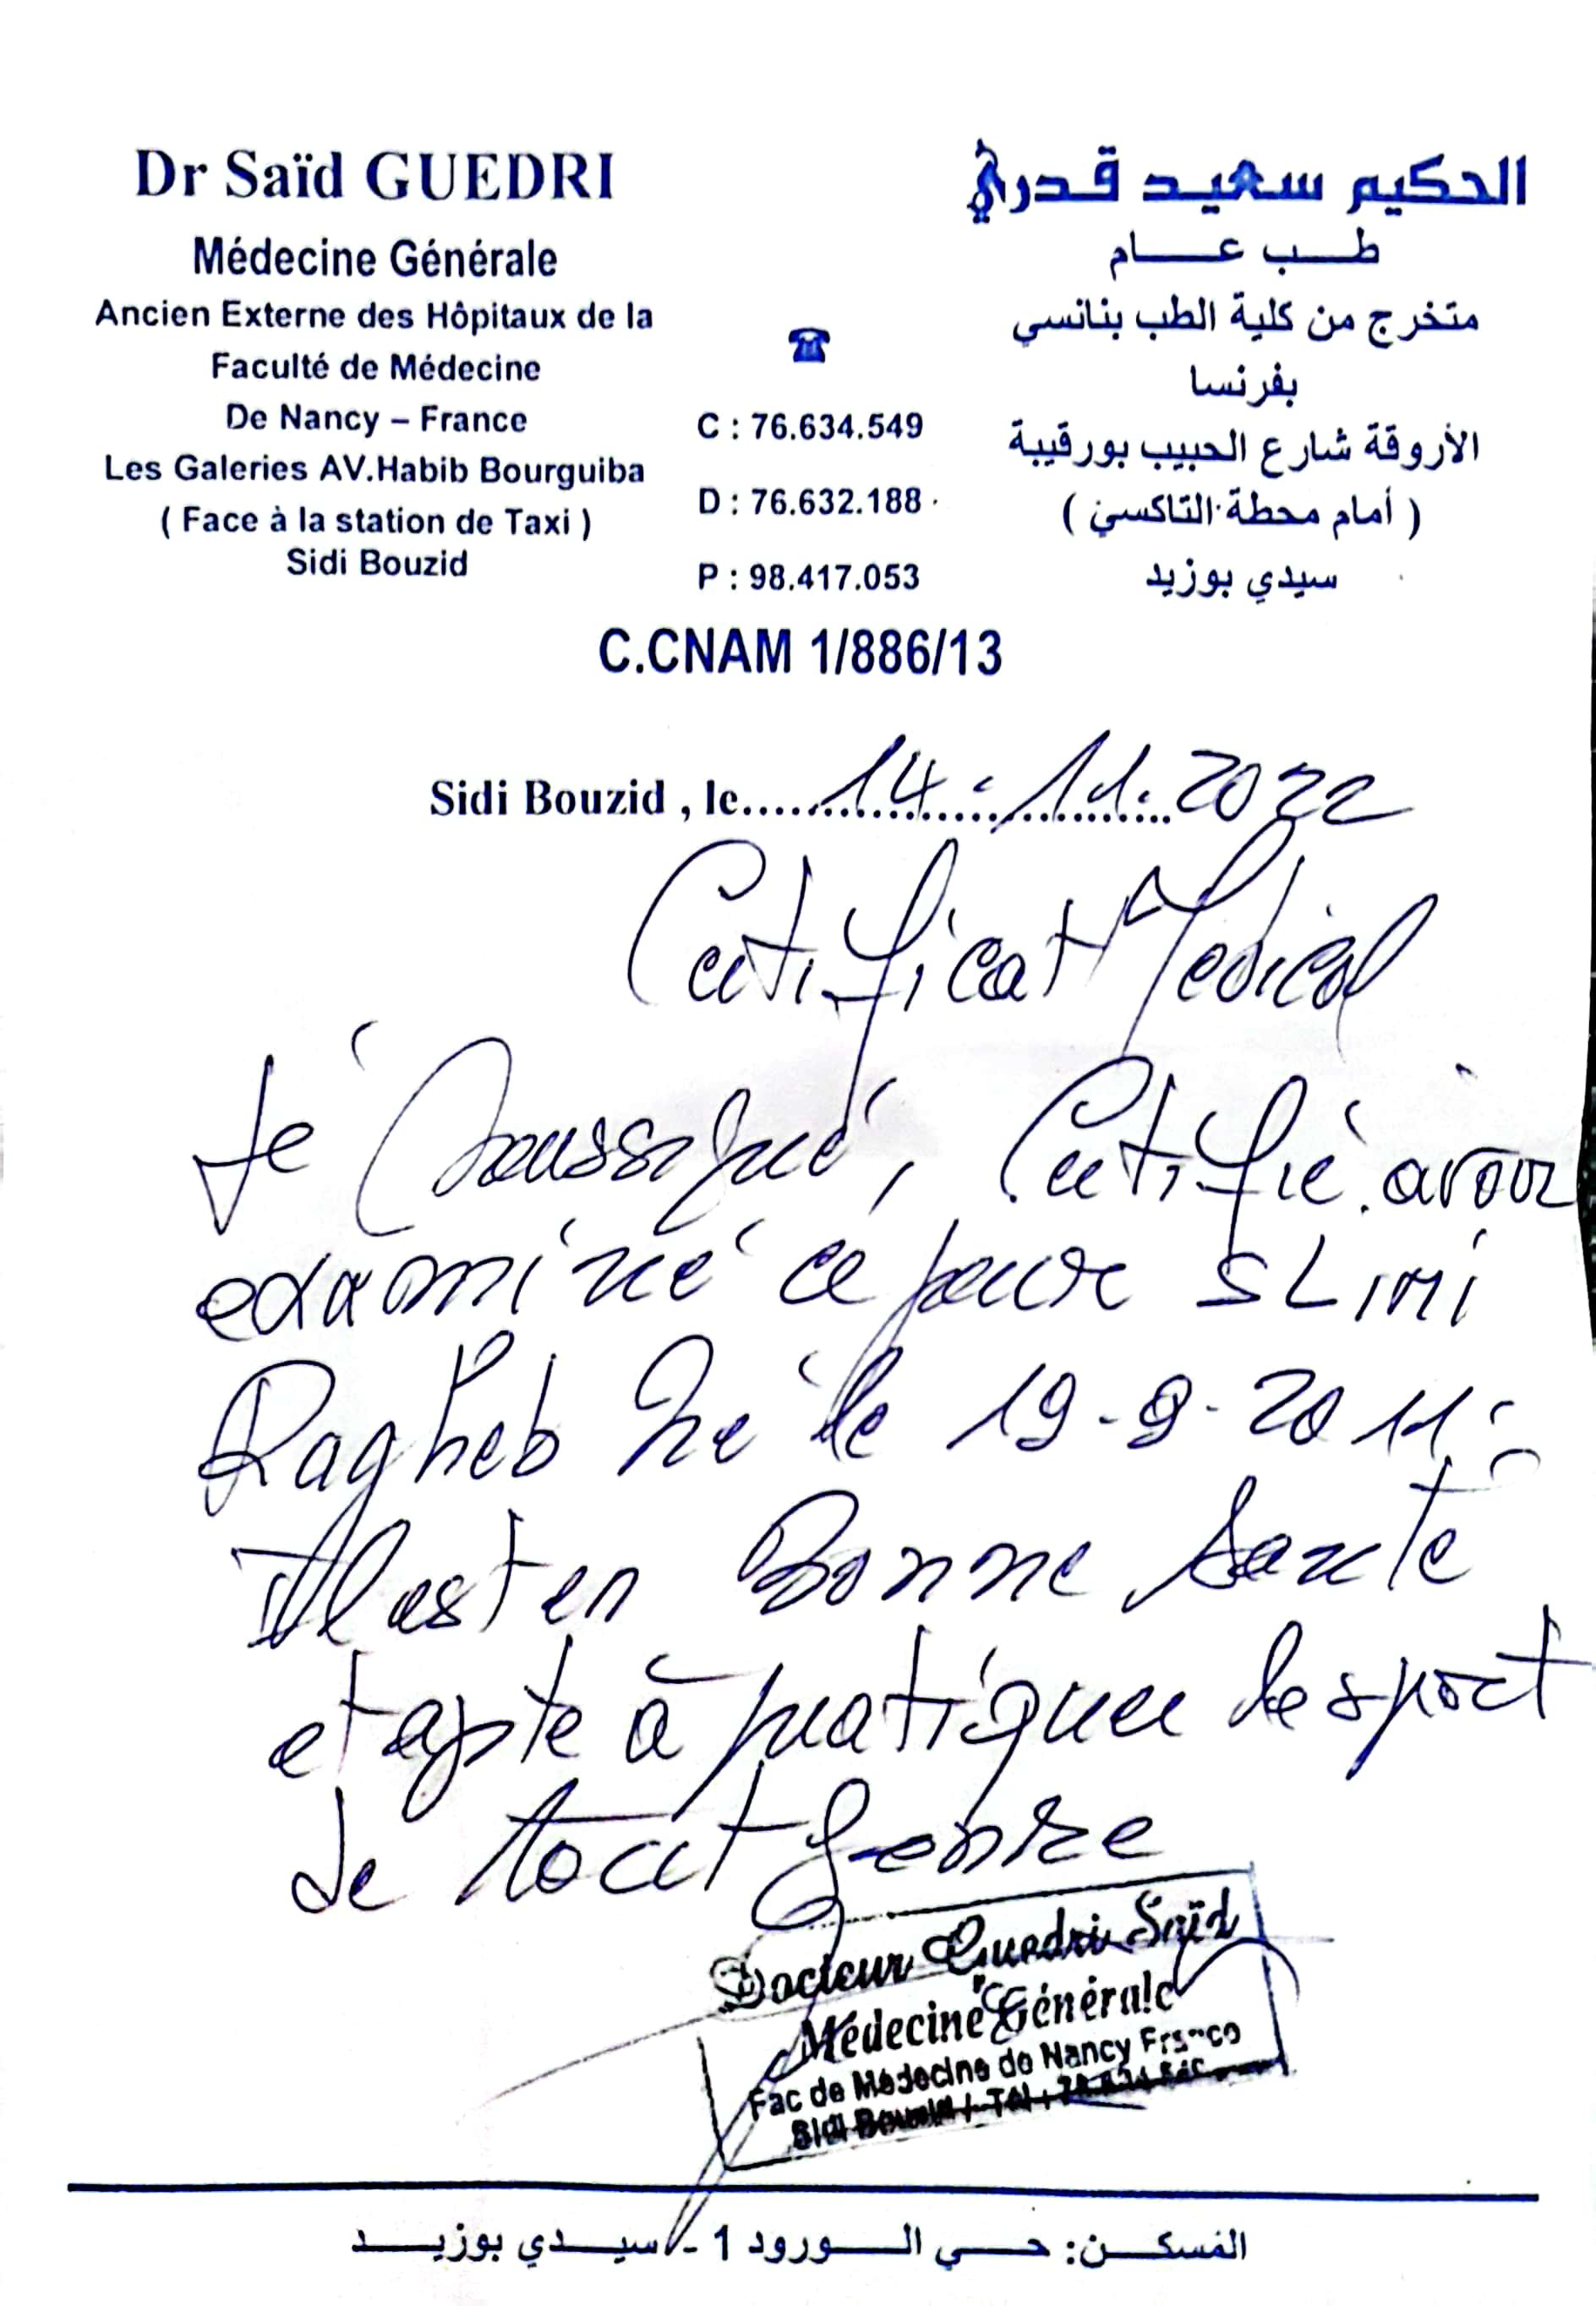 Dr Saïd GUEDRI
Médecine Générale
Ancien Externe des Hôpitaux de la
Faculté de Médecine
De Nancy – France
Les Galeries AV.Habib Bourguiba
( Face à la station de Taxi )
Sidi Bouzid
☎
C : 76.634.549
D : 76.632.188
P : 98.417.053
الحكيم سعيد قدري
طب عام
متخرج من كلية الطب بنانسي
بفرنسا
الأروقة شارع الحبيب بورقيبة
( أمام محطة التاكسي )
سيدي بوزيد
C.CNAM 1/886/13
Sidi Bouzid , le 14.11.2022
Certificat Médical
Je Soussigné, Certifie avoir
examiné ce jour SLIMI
Ragheb né le 19-9-2011.
Il est en Bonne Santé
et apte à pratiquer le sport
de tout genre
Docteur Guedri Saïd
Médecine Générale
Fac de Médecine de Nancy France
Sidi Bouzid
المسكن: حي الورود 1 - سيدي بوزيد